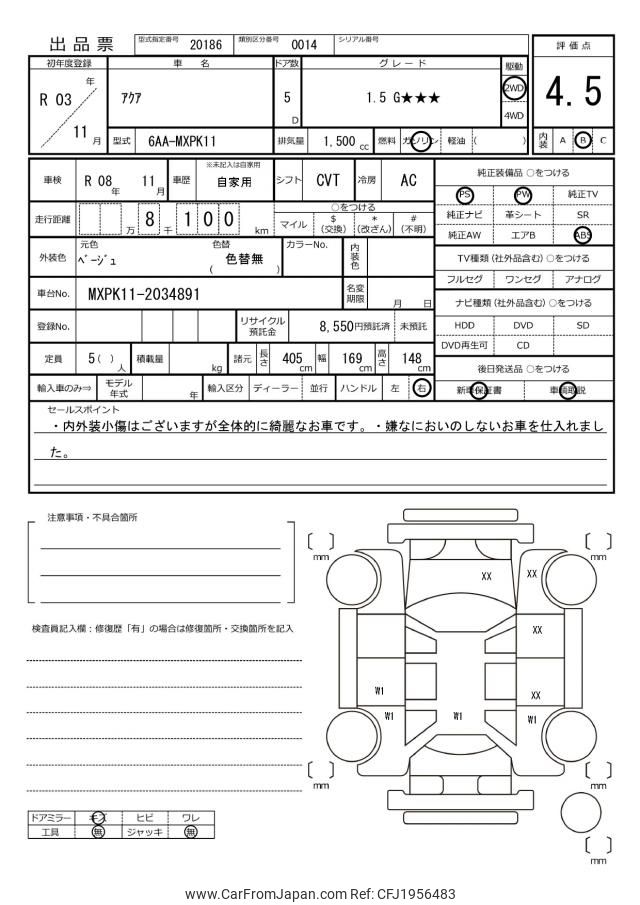 出品票 型式指定番号 20186 類別区分番号 0014 シリアル番号
評価点
4.5
内装 A B C
初年度登録 車名 ドア数 グレード 駆動
R 03 年 11 月
アクア 5 D 1.5 G★★★ 2WD 4WD
型式 6AA-MXPK11 排気量 1,500 cc 燃料 ガソリン 軽油 ( )
車検 R 08 年 11 月 車歴 ※未記入は自家用 自家用 シフト CVT 冷房 AC
走行距離 万 8 千 1 0 0 km
○をつける
マイル $ (交換) * (改ざん) # (不明)
外装色 元色 ベージュ 色替 ( 色替無 ) カラーNo. 内装色
車台No. MXPK11-2034891 名変期限 月 日
登録No. リサイクル預託金 8,550円預託済 未預託
定員 5 ( ) 人 積載量 kg 諸元 長さ 405 cm 幅 169 cm 高さ 148 cm
輸入車のみ⇒ モデル年式 年 輸入区分 ディーラー 並行 ハンドル 左 右
純正装備品 ○をつける
PS PW 純正TV
純正ナビ 革シート SR
純正AW エアB ABS
TV種類 (社外品含む) ○をつける
フルセグ ワンセグ アナログ
ナビ種類 (社外品含む) ○をつける
HDD DVD SD
DVD再生可 CD
後日発送品 ○をつける
新車保証書 車輌取説
セールスポイント
・内外装小傷はございますが全体的に綺麗なお車です。・嫌なにおいのしないお車を仕入れまし
た。
注意事項・不具合箇所
検査員記入欄：修復歴「有」の場合は修復箇所・交換箇所を記入
mm
mm
XX
XX
XX
XX
W1
W1
W1
W1
mm
mm
mm
ドアミラー キズ ヒビ ワレ
工具 無 ジャッキ 無
www.CarFromJapan.com Ref: CFJ1956483